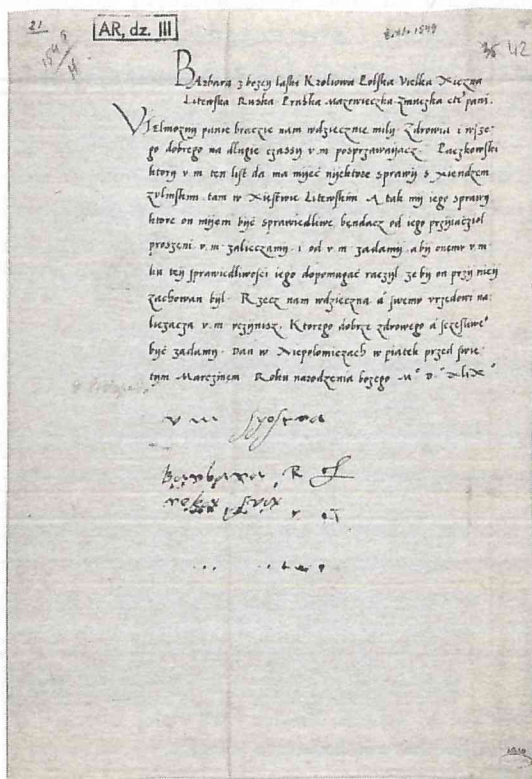 21
AR, dz. III
8.XI.1549
1549
42
Barbara z bożey łaski Kroliowa Polska Vielka Xiezna
Litewska Ruska Pruska Mazowieczka Zmuczka etc pani.
Vielmozny panie braczie nam wdziecznie mily Zdrowia i wsze
go dobrego na dlugie czassy v.m posprzawaijacz Paczkowski
ktory v m ten list da ma myeć nyektore sprawy s xiendzem
zylinskim tam w xiestwie Litewskim A tak my iego sprawy
ktore on mijem być sprawiedliwe bendacz od iego przyiacziol
proszeni v.m zalieczamy i od v m żadamy aby onemu v m
ku tey sprawiedliwosci iego dopomagać raczyl żeby on przy niey
zachowan byl Rzecz nam wdzieczna á swemu vrzedowi na
liezacza v.m vczynisz. Ktorego dobrze zdrowego á sczesliwe
być żadamy Dan w Niepolomiczach w piatek przed swie
tym Marczinem Roku narodzenia bożego M° D° XLIX°
v m syostra
Barbara R